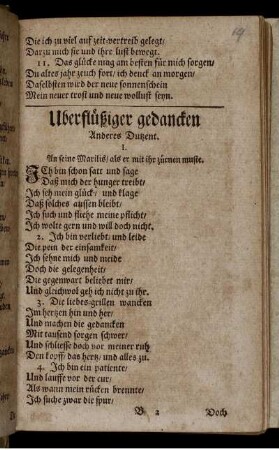 19
Die ich zu viel auf zeit-vertreib gelegt/
Darzu mich sie und ihre lust bewegt.
11. Das glücke mag am besten für mich sorgen/
Du altes jahr zeuch fort/ ich denck an morgen/
Daselbsten wird der neue sonnenschein
Mein neuer trost und neue wollust seyn.
Uberflüßiger gedancken
Anderes Dutzent.
I.
An seine Marilis/ als er mit ihr zürnen muste.
ICh bin schon satt und sage
Daß mich der hunger treibt/
Ich seh mein glück/ und klage
Daß solches aussen bleibt/
Ich such und fliehe meine pflicht/
Ich wolte gern und will doch nicht.
2. Ich bin verliebt/ und leide
Die pein der einsamkeit/
Ich sehne mich und meide
Doch die gelegenheit/
Die gegenwart beliebet mir/
Und gleichwol geh ich nicht zu ihr.
3. Die liebes-grillen wancken
Im hertzen hin und her/
Und machen die gedancken
Mit tausend sorgen schwer/
Und schliesse doch vor meiner ruh
Den kopff/ das hertz/ und alles zu.
4. Ich bin ein patiente/
Und lauffe vor der cur/
Als wann mein rücken brennte/
Ich suche zwar die spur/
B 2 Doch